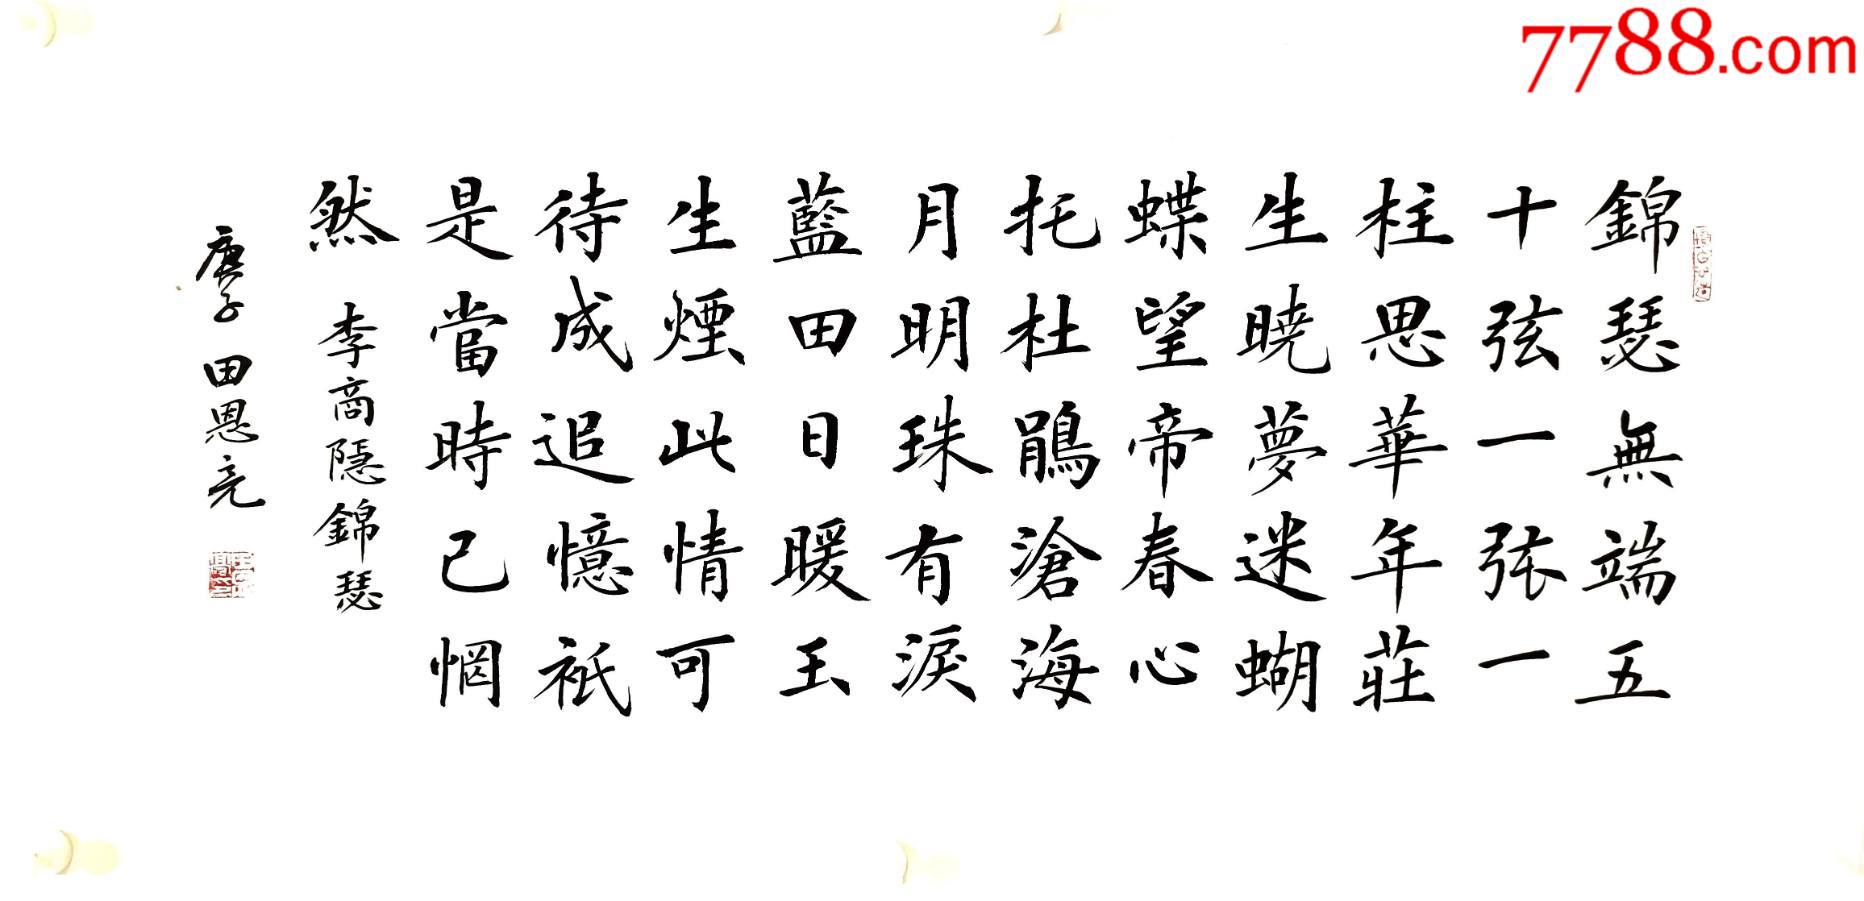 錦瑟無端五
十弦一张一
柱思華年莊
生暁夢迷蝴
蝶望帝春心
托杜鵑滄海
月明珠有淚
藍田日暖玉
生煙此情可
待成追憶祇
是當時已惘
然 李商隐錦瑟
庚子 田恩亮
7788.com